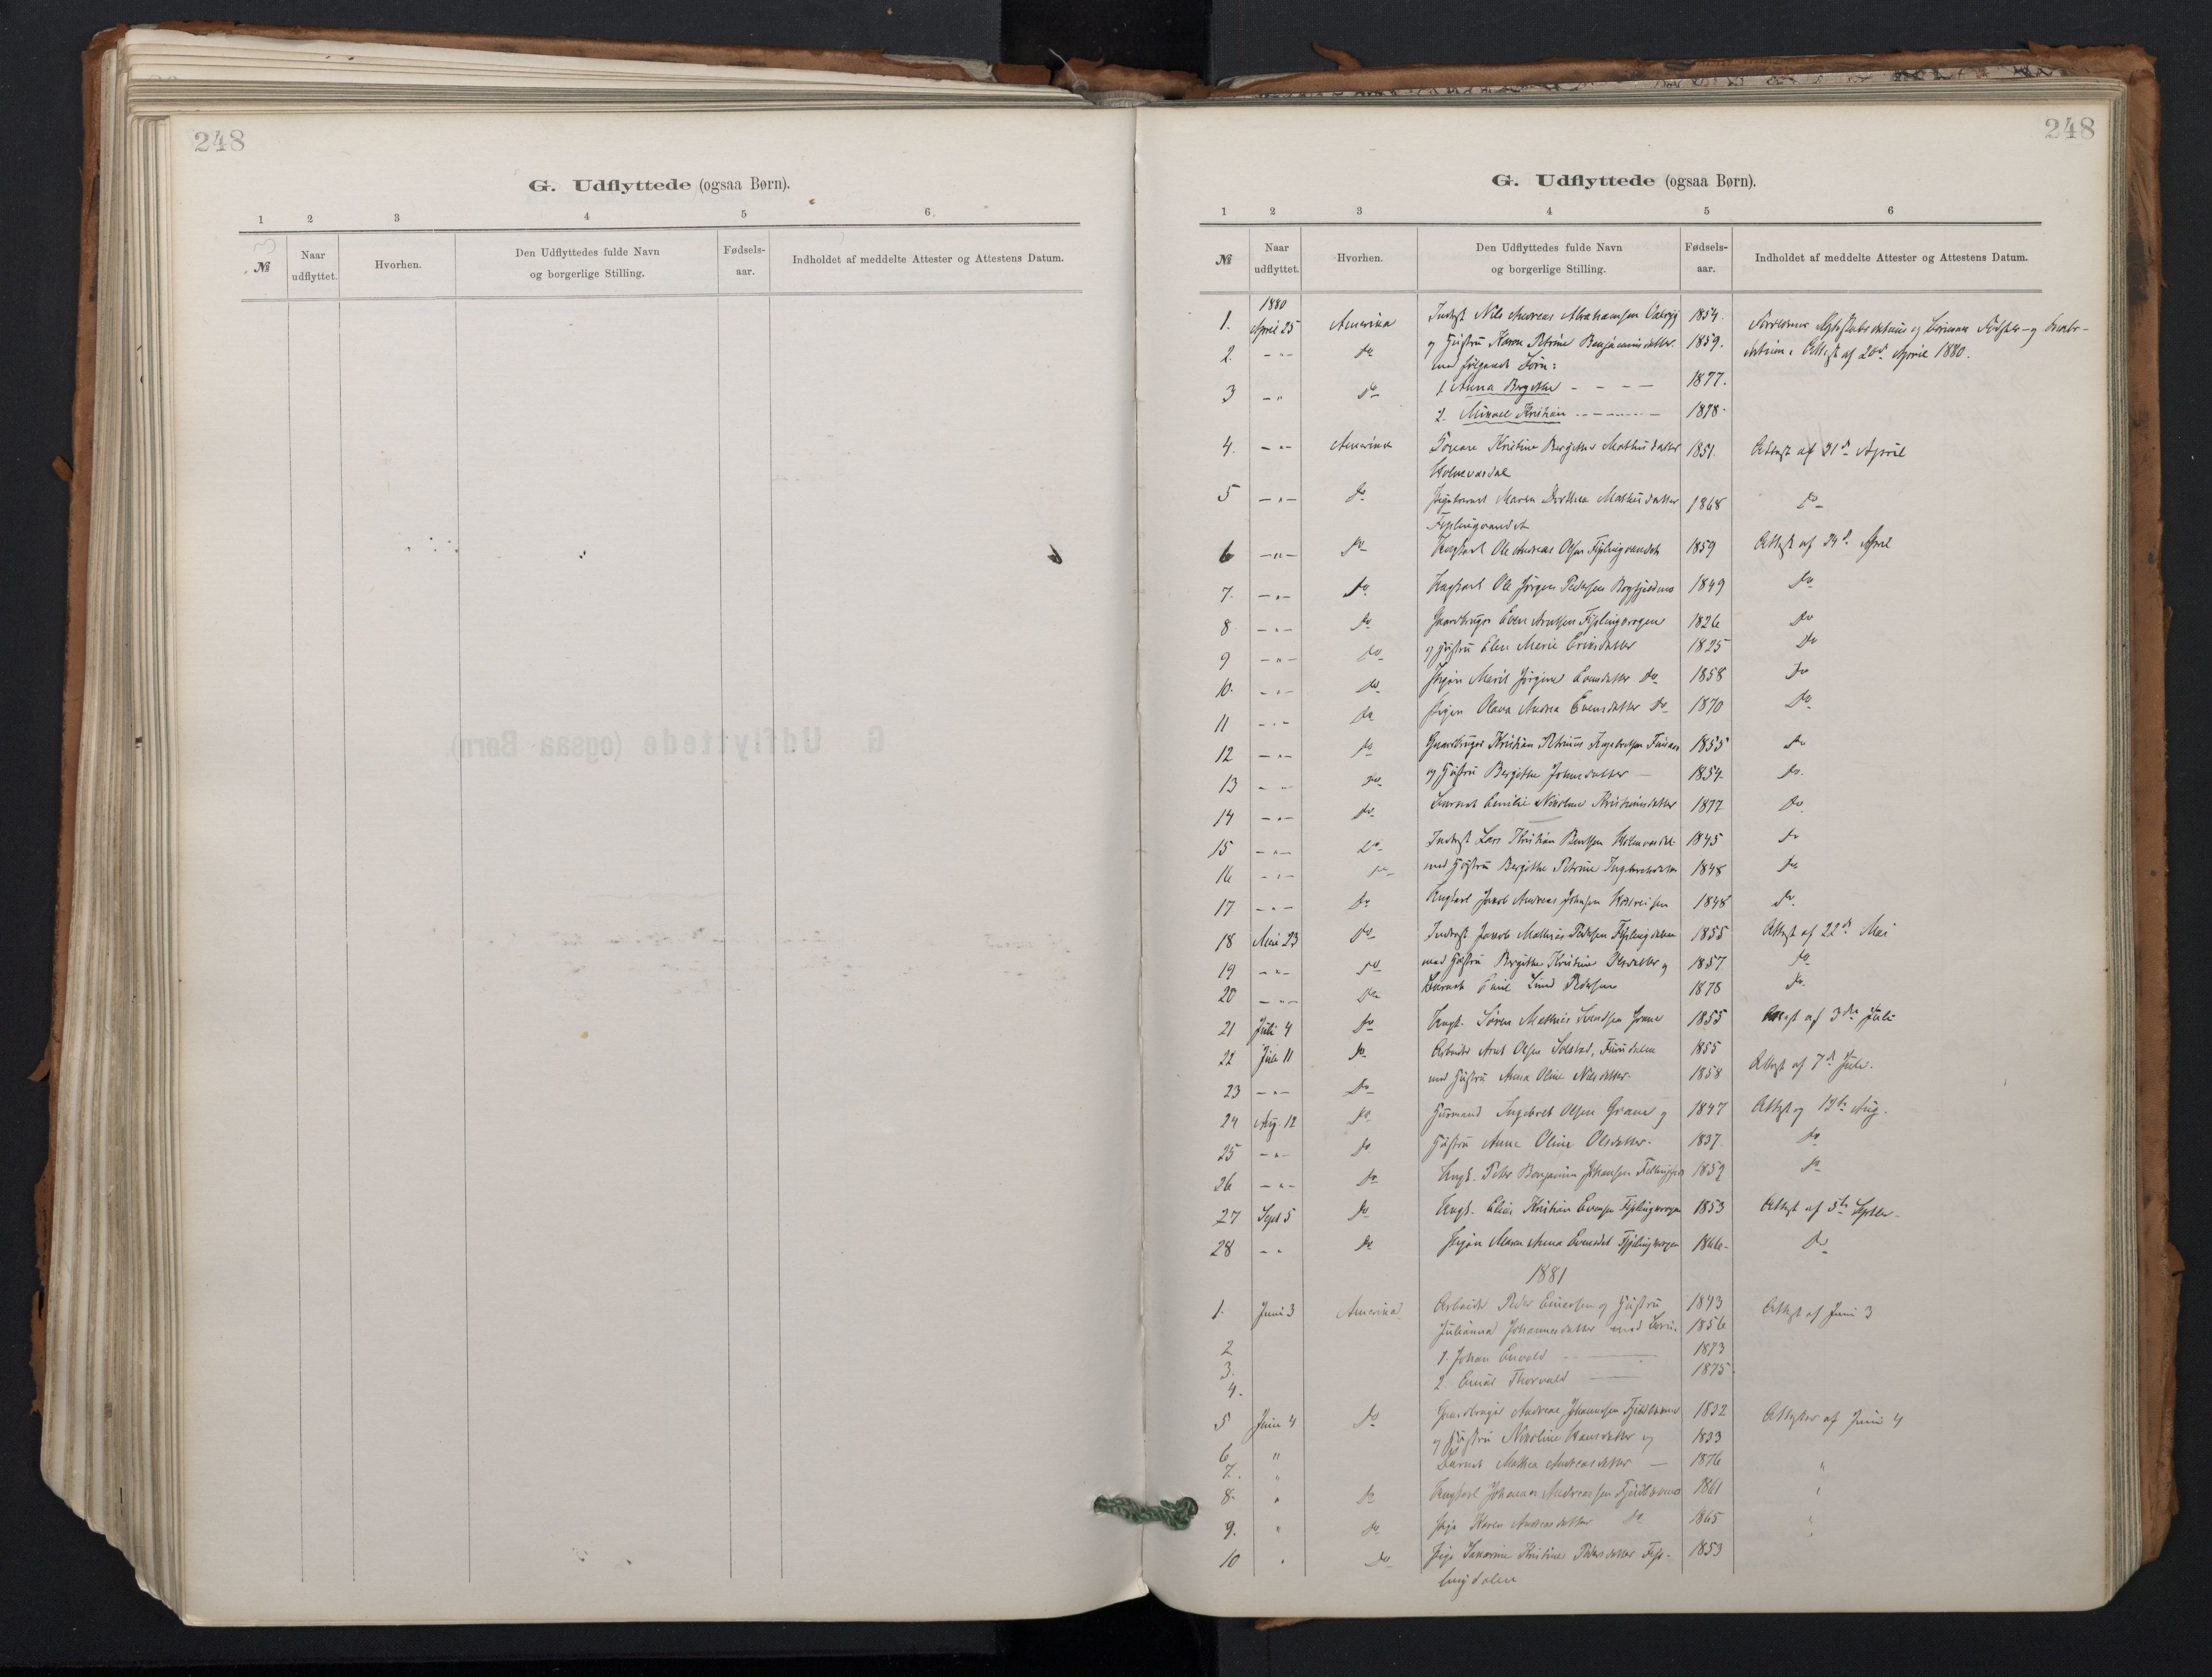 248
G. Udflyttede (ogsaa Børn).
1 2 3 4 5 6
№ Naar udflyttet. Hvorhen. Den Udflyttedes fulde Navn og borgerlige Stilling. Fødsels-aar. Indholdet af meddelte Attester og Attestens Datum.
248
G. Udflyttede (ogsaa Børn).
1 2 3 4 5 6
№ Naar udflyttet. Hvorhen. Den Udflyttedes fulde Navn og borgerlige Stilling. Fødsels-aar. Indholdet af meddelte Attester og Attestens Datum.
1880
1. April 25 Amerika Inderst Nils Andreas Abrahamsen 1854.
2. -"- Do og Hustru Karen Petrine Benjaminsdatter 1859. Attest af 20de April 1880.
med følgende Børn:
3 -"- Do 1. Anna Bergithe 1877.
2. Mikael Kristian 1878.
4. -"- Amerika Kristine Bergitte Mathisdatter 1851. Attest af 21de April
Holmvasdal
5 -"- Do Maren Dorthea Mathisdatter 1868 Do
Fiplingvandet
6 -"- Do Ungkarl Ole Andreas Olsen Fiplingvandet 1859 Attest af 24de April
7. -"- Do Ungkarl Ole Jørgen Pedersen 1849 Do
8 -"- Do Gaardbruger Even Arntsen Fiplingkrogen 1826 Do
9 -"- Do og Hustru Elen Marie Eriksdatter 1825 Do
10. -"- Do Pigen Marit Jørgine Evensdatter Do 1858 Do
11 -"- Do Pigen Olava Andrea Evensdatter Do 1870 Do
12 -"- Do Gaardbruger Kristian Petrinus Ingebretsen 1855 Do
13 -"- Do og Hustru Bergithe Johnsdatter 1854 Do
14 -"- Do Barnet Emilie Nikoline Kristiansdatter 1877 Do
15 -"- Do Inderst Lars Kristian Bentsen 1845 Do
16 -"- Do med Hustru Bergithe Petrine Ingebretsdatter 1848 Do
17 -"- Do Ungkarl Jakob Andreas Johnsen 1848 Do
18 Mai 23 Do Inderst Jakob Mathias Pedersen Fiplingdalen 1855 Attest af 22de Mai
19 -"- Do med Hustru Bergithe Kristine Olsdatter og 1857 Do
20 -"- Do Barnet Emil Lund Pedersen 1878 Do
21 Juli 4 Do Ungk. Søren Mathias Svendsen Grane 1855 Attest af 3die Juli
22 Juli 11 Do Arbeider Arnt Olsen Solstad, 1855 Attest af 7de Juli.
23 -"- Do med Hustru Anna Oline Nilsdatter 1858
24 Aug. 12 Do Husmand Ingebret Olsen Grane og 1847 Attest af 12te Aug.
25 -"- Do Hustru Anne Oline Olsdatter 1837. Do
26 -"- Do Ungk. Peter Benjamin Johansen 1859 Do
27 Sept 5 Do Ungk. Elias Kristian Evensen Fiplingkrogen 1853 Attest af 5te Septbr.
28 -"- Do Pigen Maren Anna Evensdat Fiplingkrogen 1866 Do
1881
1. Juni 3 Amerika Arbeider Peder Einersen og Hustru 1843 Attest af Juni 3
Julianna Johannesdatter med Børn 1856
2 1. Johan Envald 1873
3. 2. Einar Thorvald 1875
4.
5 Juni 4 Do Gaardbruger Andreas Johannesen 1832 Attester af Juni 4
6 " og Hustru Nikoline Hansdatter og 1833
7. " Barnet Mathea Andreasdatter 1876 "
8. " Do Ungkarl Johannes Andreassen 1861 "
9. " Do Pige Karen Andreasdatter Do 1865 "
10 " Do Pige Kristine Pedersdatter Fip- 1853
lingdalen